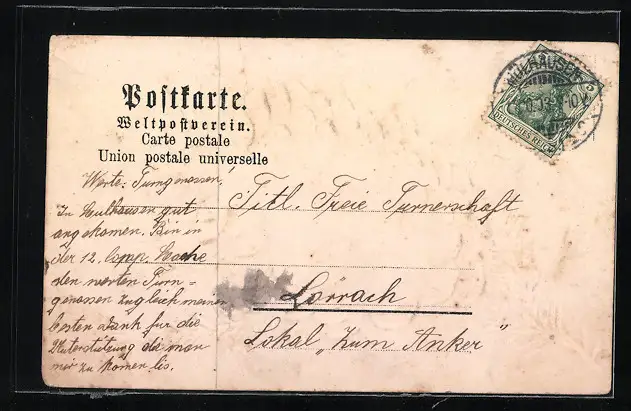 Postkarte.
Weltpostverein.
Carte postale
Union postale universelle
MÜLHAUSEN
DEUTSCHES REICH
Werte Turngenossen!
In Mülhausen gut
angekomen. Bin in
der 12. Comp. Mache
den werten Turn=
genossen zugleich meinen
besten Dank für die
Unterstützung die man
mir zu komen lis.
Titl. Freie Turnerschaft
Lörrach
Lokal „Zum Anker"